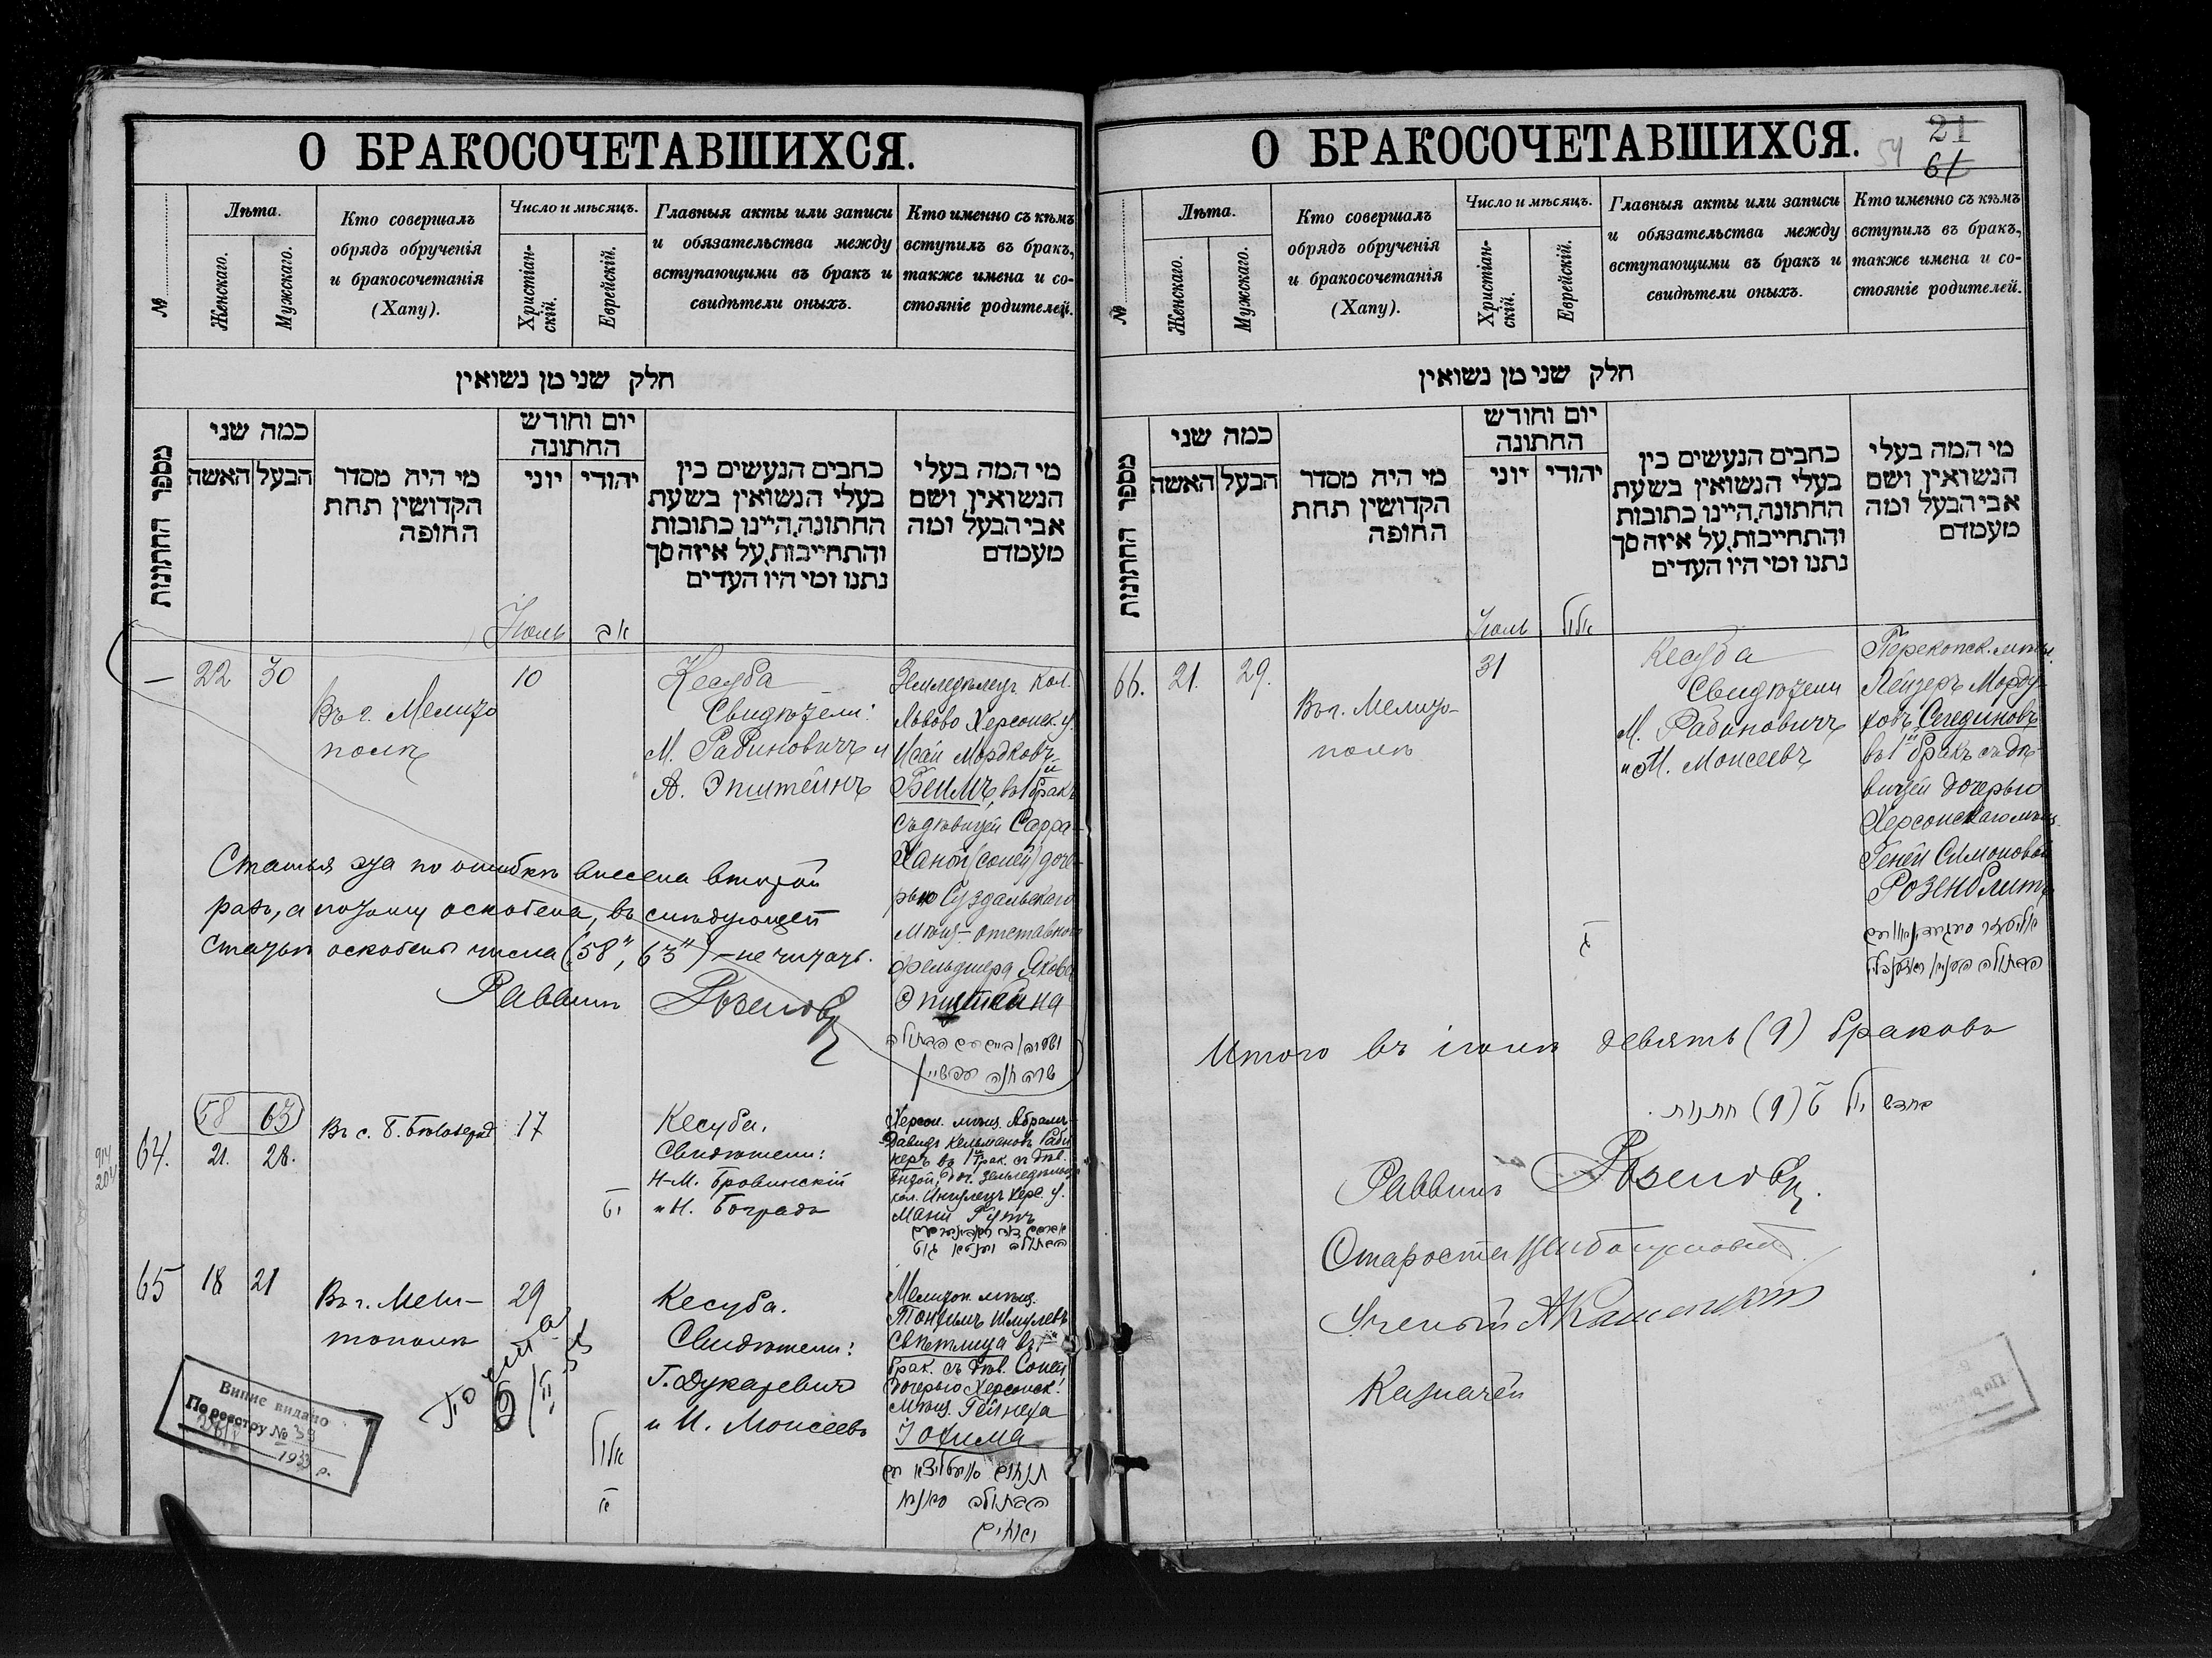 О БРАКОСОЧЕТАВШИХСЯ.
№
Лѣта.
Женскаго.
Мужскаго.
Кто совершалъ
обрядъ обрученія
и бракосочетанія
(Хапу).
Число и мѣсяцъ.
Христіан-
скій.
Еврейскій.
Главныя акты или записи
и обязательства между
вступающими въ бракъ и
свидѣтели оныхъ.
Кто именно съ кѣмъ
вступилъ въ бракъ,
также имена и со-
стояніе родителей.
חלק שני מן נשואין
מספר החתונות
כמה שני
הבעל
האשה
מי היה מסדר
הקדושין תחת
החופה
יום וחודש
החתונה
יהודי
יוני
כתבים הנעשים בין
בעלי הנשואין בשעת
החתונה, היינו כתובות
והתחייבות, על איזה סך
נתנו ומי היו העדים
מי המה בעלי
הנשואין ושם
אבי הבעל ומה
מעמדם
Іюль
אב
—
22
30
Въ г. Мелито
полѣ
10
Кесуба
Свидѣтели:
М. Рабиновичъ и
А. Эпштейнъ
Земледѣлецъ кол.
Львово Херсонск. у.
Исай Мордковъ
Беимъ, въ 1й бракъ
съ дѣвицей Сарра-
Ханой (соней) доче-
рью Суздальскаго
мѣщ. отставного
фельдшера Якова
Эпштейна
Статья эта по ошибкѣ внесена второй
разъ, а потому оскоблена, въ слѣдующей
статьи оскоблены числа („58", „63") – не читать.
Раввинъ
58 63
64.
21.
28.
Въ с. Б. Бѣлозерка
17
יט
Кесуба.
Свидѣтели:
Н-М. Бровинскій
и Н. Боградъ
Херсон. мѣщ. Абрамъ-
Давидъ Кельмановъ
въ 1й брак. съ дѣв.
кол. Ингулецъ Херс. у.
Мани Гутъ
65
18
21
Въ г. Мели-
тополѣ
29
אלול
א
Кесуба.
Свидѣтели:
Г. Дукаревич
и И. Моисеевъ
Мелитоп. мѣщ.
Танхимъ Шмулевъ
Свѣтлица въ 1й
брак. съ дѣв. Соней
дочерью Херсонск.
мѣщ. Гейнеха
Іохима
Випис видано
По реєстру № 39
1933 р.
О БРАКОСОЧЕТАВШИХСЯ.
54
21
61
№
Лѣта.
Женскаго.
Мужскаго.
Кто совершалъ
обрядъ обрученія
и бракосочетанія
(Хапу).
Число и мѣсяцъ.
Христіан-
скій.
Еврейскій.
Главныя акты или записи
и обязательства между
вступающими въ бракъ и
свидѣтели оныхъ.
Кто именно съ кѣмъ
вступилъ въ бракъ,
также имена и со-
стояніе родителей.
חלק שני מן נשואין
מספר החתונות
כמה שני
הבעל
האשה
מי היה מסדר
הקדושין תחת
החופה
יום וחודש
החתונה
יהודי
יוני
כתבים הנעשים בין
בעלי הנשואין בשעת
החתונה, היינו כתובות
והתחייבות, על איזה סך
נתנו ומי היו העדים
מי המה בעלי
הנשואין ושם
אבי הבעל ומה
מעמדם
Іюль
אלול
66.
21.
29.
Въ г. Мелито-
полѣ
31
ג
Кесуба
Свидѣтели
М. Рабиновичъ
и М. Моисеевъ
Перекопск. мѣщ.
Лейзеръ Морду-
ховъ Сегединовъ
въ 1й бракъ съ дѣ-
вицей дочерью
Херсонскаго мѣщ.
Геней Симоновой
Розенблитъ
Итого въ іюлѣ девять (9) браковъ
Раввинъ
Староста
Ученый
Казначей